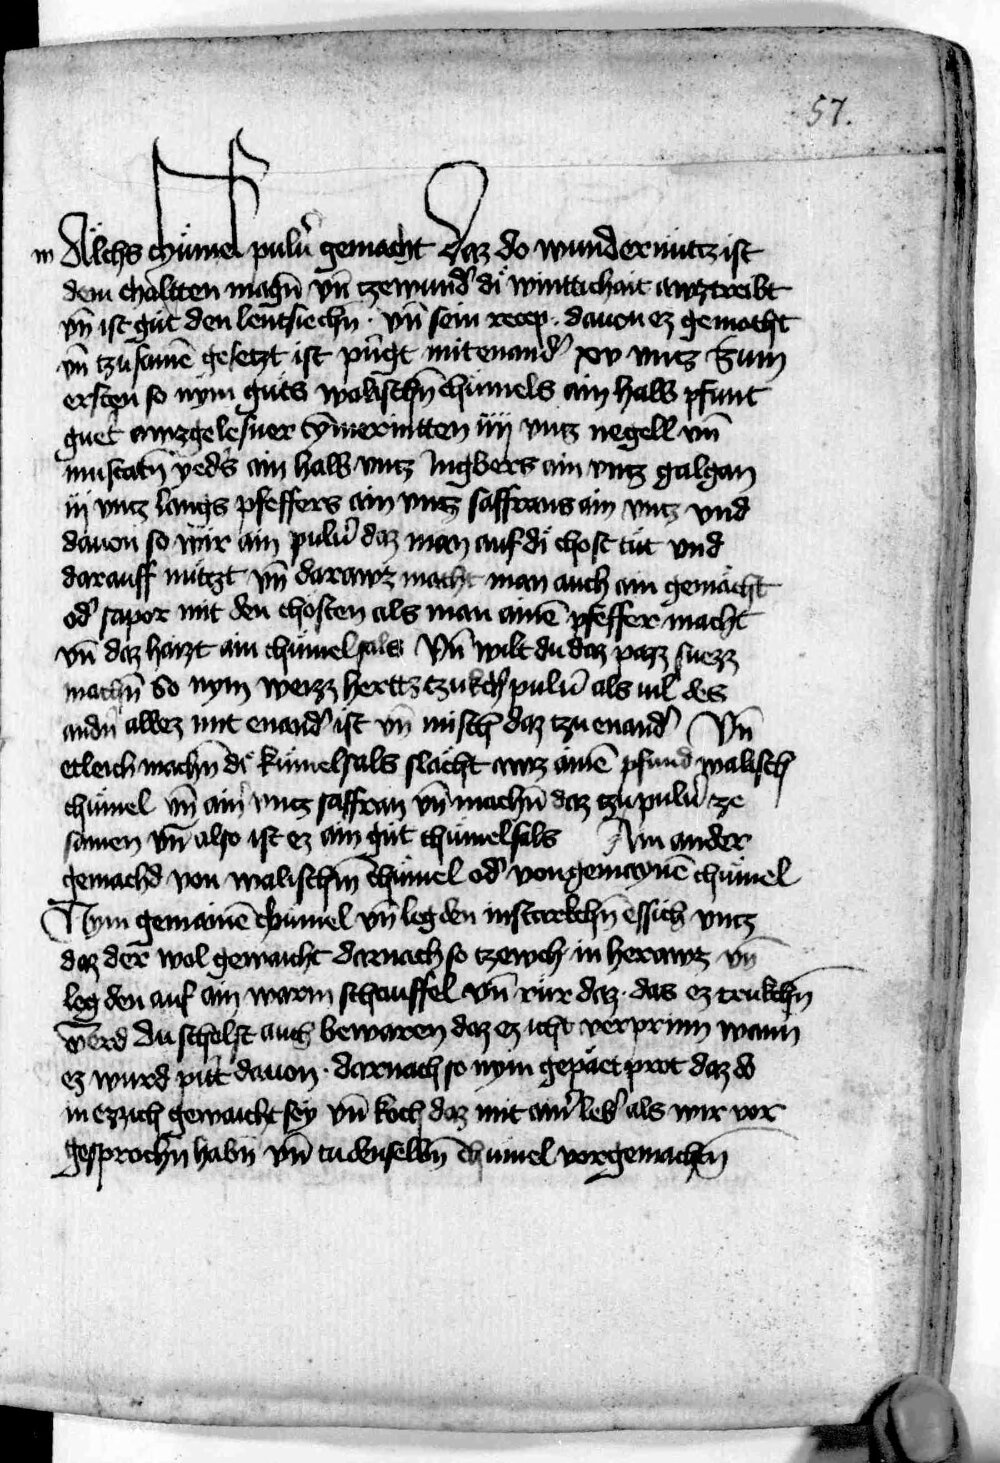 57.
m Älchs chümel pulũ gemacht Daz do wundernütz ist
dem chaltten magñ vñ tzewund᷑ di winttichait awztreibt
vñ ist güt den lentsiechñ · vñ sein recep · dauon ez gemacht
vñ tzusamē gesetzt ist pringt mitenand᷑ xv vntz Zum
ersten so nym güts walischñ chümels ain halb pfunt
guet᷑ awzgelesner Cymerintten iiij vntz negell vñ
muscatñ yeds ain halb vntz Ingbers ain vntz galgan
iij vntz langs pfeffers ain vntz saffrans ain vntz vnd
dauon so wir ain pulũ daz man auf di chost tüt vnd
darauff nützt vñ darawz macht man auch ain gemächt
od᷑ sapor mit den chosten als man ainē pfeffer macht
vñ daz haizt ain chümelsals Vñ wilt du daz pazz suezz
machñ So nym weizz herttz tzukch᷑ pulũ als vil des
andñ allez mit enand᷑ ist vñ misch daz tzu enand᷑ Vñ
etleich machñ di kümelsals slächt awz ainē pfund walisch
chümel vñ ain᷑ vntz saffran vñ machñ daz tzu pulũ ze
samen vñ also ist ez ain güt chümelsals Ain ander
gemachd von walischm chümel od᷑ von gemaynē chümel
Nym gemainē chümel vñ leg den in starkchñ essich vntz
daz der wol gewaicht darnach so tzewch in herawz vñ
leg den auf ain warm schauffel vñ rür daz · das ez trukchñ
werd du scholst auch bewaren daz ez icht verprinn wann
ez wurd pitt᷑ dauon · darnach so nym gepäet prot daz do
in ezzich gewaicht sey vñ koch daz mit ain᷑ leb᷑ als wir vor
gesprochñ habñ vñ tu denselbñ chümel vorgemachtñ